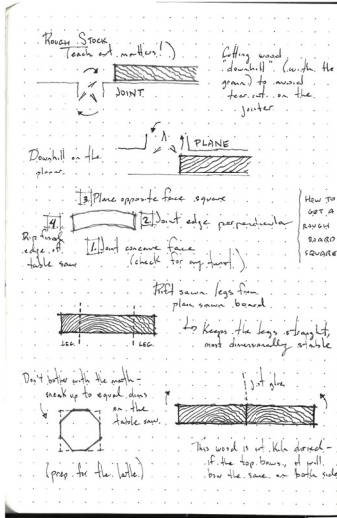 ROUGH STOCK
(each cut matters!)
JOINT
Cutting wood
"downhill" (with the
grain) to avoid
tear out on the
jointer
PLANE
Downhill on the
planer
3. Plane opposite face square
4.
Rip final
edge on
table saw
2. Joint edge perpendicular
1. Joint concave face
(check for any
HOW TO
GET A
ROUGH
BOARD
SQUARE
Rift sawn legs from
plain sawn board
LEG
LEG
↳ Keeps the legs straight,
most dimensionally stable
Don't bother with the math -
sneak up to equal dims
on the
table saw.
(prep for the lathe)
just glue
This wood is not kiln dried -
if the top bows, it will
bow the same on both sides